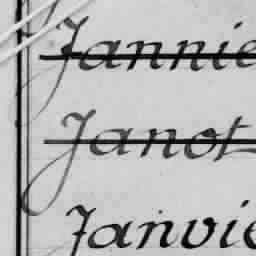 Jannie
Janot
Janvie